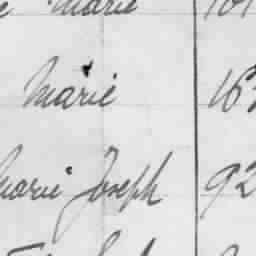 Marie
Marie 16
Marie Joseph 92